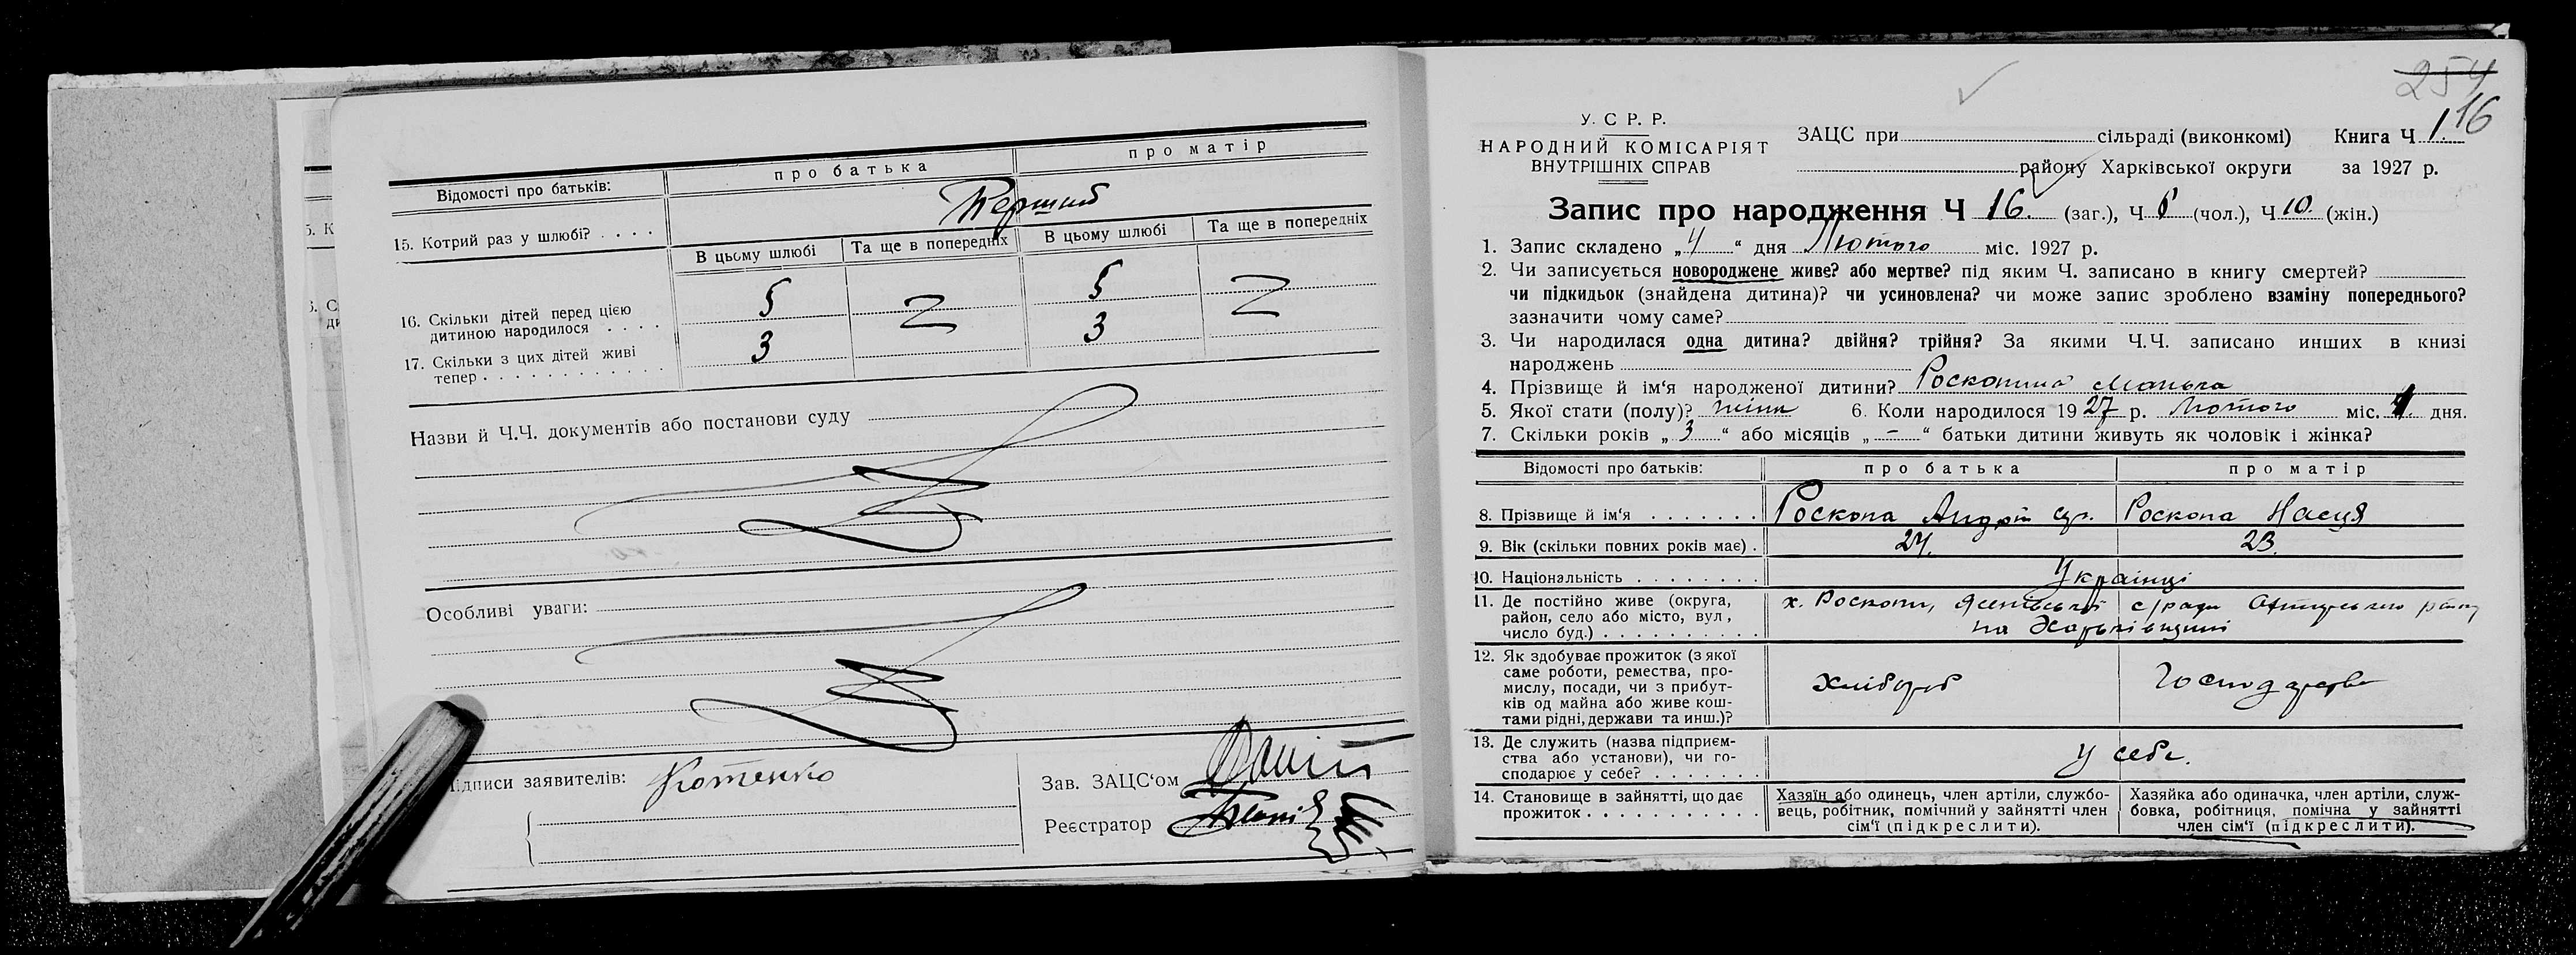 Відомості про батьків: про батька про матір
15. Котрий раз у шлюбі? . . . . Перший
В цьому шлюбі Та ще в попередніх В цьому шлюбі Та ще в попередніх
16. Скільки дітей перед цією
дитиною народилося . . . . 5 5
17. Скільки з цих дітей живі
тепер . . . . . . . . . . . . 3 3
Назви й Ч.Ч. документів або постанови суду
Особливі уваги:
ідписи заявителів: Котенко
Зав. ЗАЦС‘ом
Реєстратор
254
16
У. С Р. Р.
НАРОДНИЙ КОМІСАРІЯТ
ВНУТРІШНІХ СПРАВ
ЗАЦС при сільраді (виконкомі) Книга Ч 1.
району Харківської округи за 1927 р.
Запис про народження Ч 16. (заг.), Ч 6 (чол.), Ч 10. (жін.)
1. Запис складено „4“ дня Лютого міс. 1927 р.
2. Чи записується новороджене живе? або мертве? під яким Ч. записано в книгу смертей?
чи підкидьок (знайдена дитина)? чи усиновлена? чи може запис зроблено взаміну попереднього?
зазначити чому саме?
3. Чи народилася одна дитина? двійня? трійня? За якими Ч.Ч. записано инших в книзі
народжень
4. Прізвище й ім‘я народженої дитини?
5. Якої стати (полу)? жіни 6. Коли народилось 1927 р. Лютого міс. 4. дня.
7. Скільки років „3“ або місяців „-“ батьки дитини живуть як чоловік і жінка?
Відомості про батьків: про батька про матір
8. Прізвище й ім‘я . . . . . . . Роскопа Андрій Роскопа Насця
9. Вік (скільки повних років має) . 24. 23.
10. Національність . . . . . . . . Українці
11. Де постійно живе (округа, х. Роскопи, с/ради
район, село або місто, вул, на Харьківщині
число буд.) . . . . . . . . . .
12. Як здобуває прожиток (з якої
саме роботи, ремества, про-
мислу, посади, чи з прибут- хлібороб господарство
ків од майна або живе кош-
тами рідні, держави та инш.)?
13. Де служить (назва підприєм-
ства або установи), чи го- у себе.
сподарює у себе? . . . . . . .
14. Становище в зайнятті, що дає Хазяїн або одинець, член артіли, службо- Хазяйка або одиначка, член артіли, служ-
прожиток . . . . . . . . . . . вець, робітник, помічний у зайнятті член бовка, робітниця, помічна у зайнятті
сім‘ї (підкреслити). член сім‘ї (підкреслити).